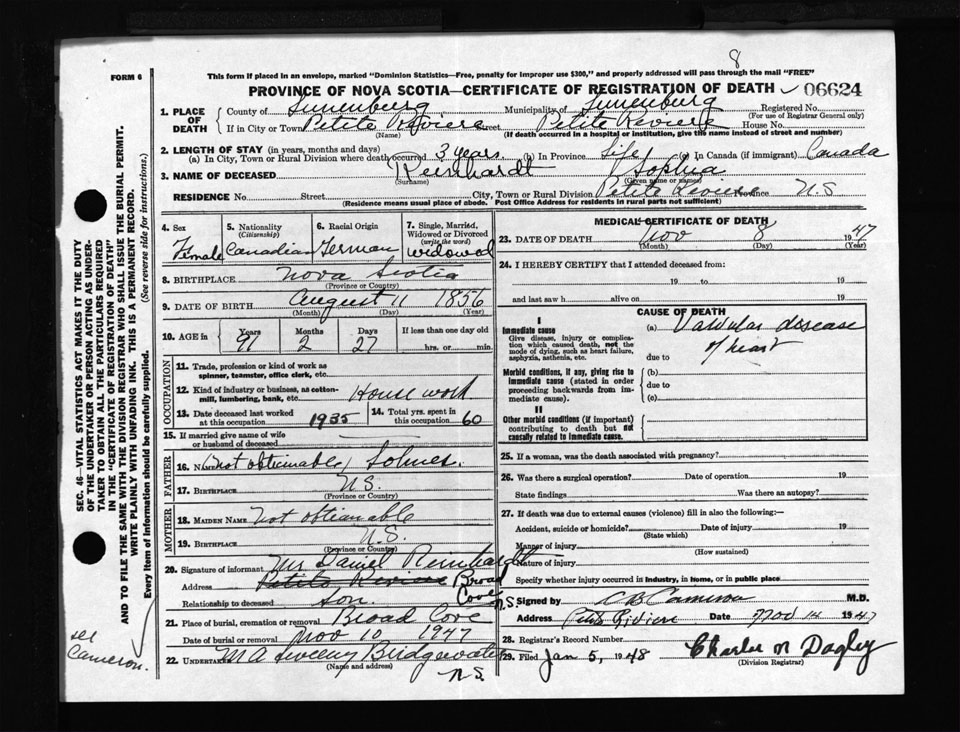 8
FORM 6
This form if placed in an envelope, marked "Dominion Statistics—Free, penalty for improper use $300," and properly addressed will pass through the mail "FREE"
PROVINCE OF NOVA SCOTIA—CERTIFICATE OF REGISTRATION OF DEATH 06624
1. PLACE OF DEATH County of Lunenburg Municipality of Lunenburg Registered No.
(For use of Registrar General only)
If in City or Town Petite Riviere Street Petite Reviere House No.
(Name) (If death occurred in a hospital or institution, give the name instead of street and number)
2. LENGTH OF STAY (in years, months and days)
(a) In City, Town or Rural Division where death occurred 3 years. (b) In Province Life (c) In Canada (if immigrant) Canada
3. NAME OF DECEASED Reinhardt Sophia
(Surname) (Given name or names)
RESIDENCE No. Street City, Town or Rural Division Petite Riviere Province N.S
(Residence means usual place of abode. Post Office Address for residents in rural parts not sufficient)
4. Sex Female
5. Nationality (Citizenship) Canadian
6. Racial Origin German
7. Single, Married, Widowed or Divorced (write the word) widowed
8. BIRTHPLACE Nova Scotia
(Province or Country)
9. DATE OF BIRTH August 11 1856
(Month) (Day) (Year)
10. AGE in Years Months Days If less than one day old
91 2 27 hrs. or min.
OCCUPATION
11. Trade, profession or kind of work as spinner, teamster, office clerk, etc.
12. Kind of industry or business, as cotton-mill, lumbering, bank, etc. House work
13. Date deceased last worked at this occupation 1935 14. Total yrs. spent in this occupation 60
15. If married give name of wife or husband of deceased
FATHER
16. NAME (not obtainable) Solmes.
17. BIRTHPLACE N.S.
(Province or Country)
MOTHER
18. MAIDEN NAME Not obtianable
19. BIRTHPLACE N.S.
(Province or Country)
20. Signature of informant Mr Daniel Reinhardt
Address Petite Reviere Broad Cove N.S.
Relationship to deceased son.
21. Place of burial, cremation or removal Broad Cove
Date of burial or removal Nov 10 1947
22. UNDERTAKER M A Sweeny Bridgewater
(Name and address)
N.S.
MEDICAL CERTIFICATE OF DEATH
23. DATE OF DEATH Nov 8 1947
(Month) (Day) (Year)
24. I HEREBY CERTIFY that I attended deceased from:
19 to 19
and last saw h alive on 19
CAUSE OF DEATH
I
Immediate cause
Give disease, injury or complication which caused death, not the mode of dying, such as heart failure, asphyxia, asthenia, etc.
(a) Valvular disease
of heart
due to
Morbid conditions, if any, giving rise to immediate cause (stated in order proceeding backwards from immediate cause).
(b)
due to
(c)
II
Other morbid conditions (if important) contributing to death but not causally related to immediate cause.
25. If a woman, was the death associated with pregnancy?
26. Was there a surgical operation? Date of operation 19
State findings Was there an autopsy?
27. If death was due to external causes (violence) fill in also the following:—
Accident, suicide or homicide? Date of injury 19
(State which)
Manner of injury
(How sustained)
Nature of injury
Specify whether injury occurred in industry, in home, or in public place
Signed by C B Cameron M.D.
Address Petite Riviere Date Nov 14 1947
28. Registrar's Record Number
29. Filed Jan 5, 1948 Charles M Dagley
(Division Registrar)
SEC. 46—VITAL STATISTICS ACT MAKES IT THE DUTY
OF THE UNDERTAKER OR PERSON ACTING AS UNDER-
TAKER TO OBTAIN ALL THE PARTICULARS REQUIRED
IN THE "CERTIFICATE OF REGISTRATION OF DEATH"
AND TO FILE THE SAME WITH THE DIVISION REGISTRAR WHO SHALL ISSUE THE BURIAL PERMIT.
WRITE PLAINLY WITH UNFADING INK. THIS IS A PERMANENT RECORD.
Every item of information should be carefully supplied. (See reverse side for instructions.)
see
Cameron.